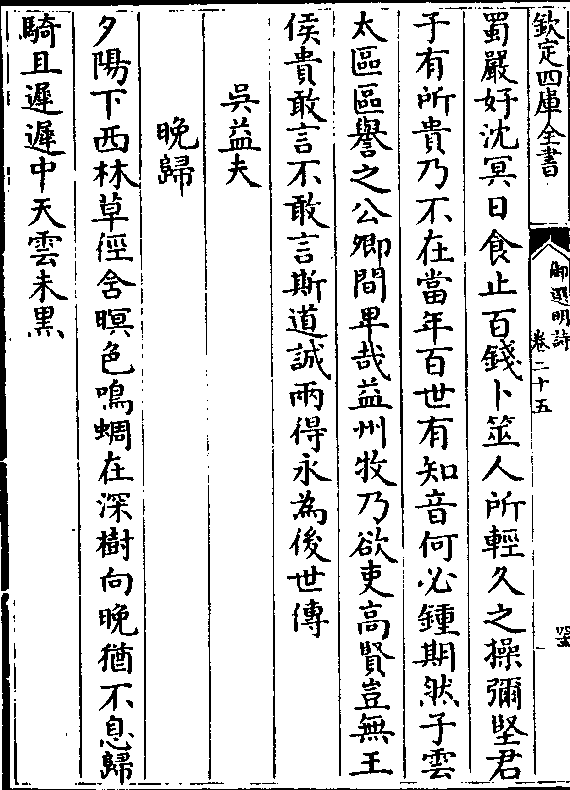 欽定四庫全書
御選明詩
卷二十五
蜀嚴好沈冥日食止百錢卜筮人所輕久之操彌堅君
子有所貴乃不在當年百世有知音何必鍾期然子雲
太區區譽之公卿間卑哉益州牧乃欲吏高賢豈無王
侯貴敢言不敢言斯道誠兩得永為後世傳
吳益夫
晚歸
夕陽下西林草徑含暝色鳴蜩在深樹向晚猶不息歸
騎且遲遲中天雲未黑